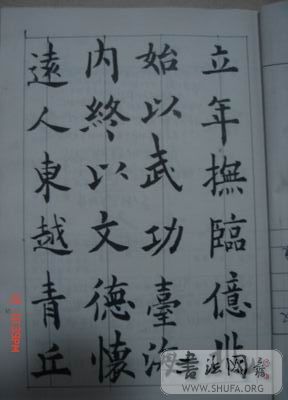 立年撫臨億兆
始以武功臺海
内終以文德懷
遠人東越青丘
書法网
WWW.SHUFA.ORG